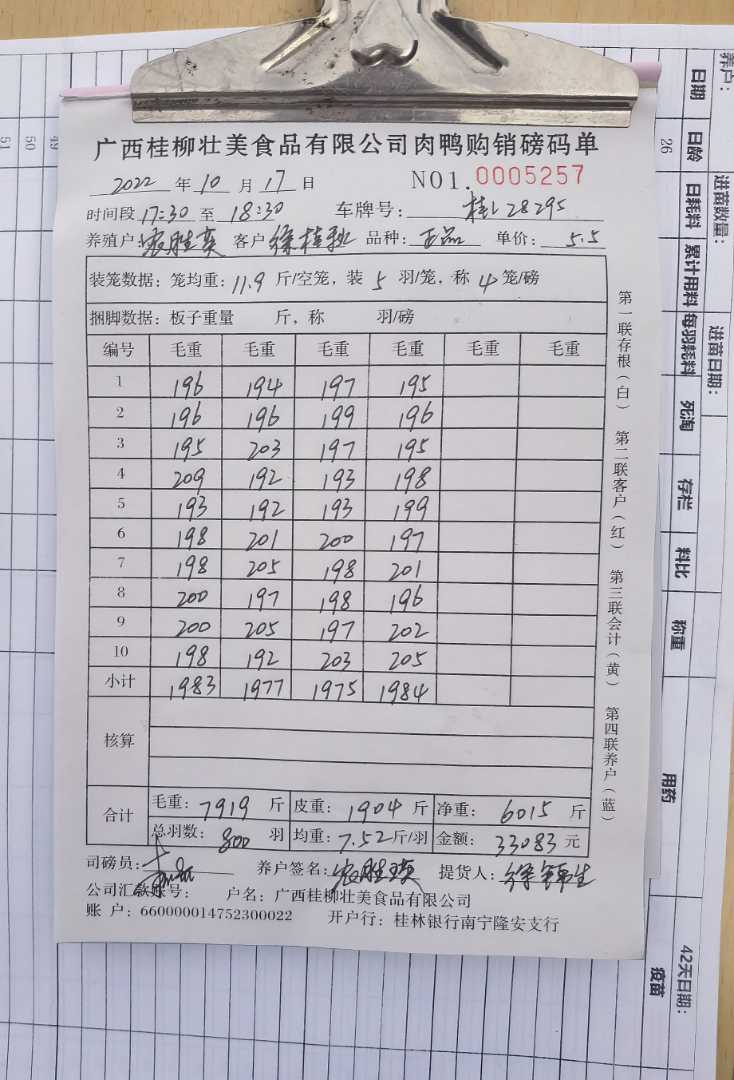 广西桂柳壮美食品有限公司肉鸭购销磅码单
2022 年 10 月 17 日 NO1. 0005257
时间段 17:30 至 18:30 车牌号: 桂L28295
养殖户: 客户 徐桂秋 品种: 正品 单价: 5.5
装笼数据: 笼均重: 11.9 斤/空笼, 装 5 羽/笼, 称 4 笼/磅
捆脚数据: 板子重量 斤, 称 羽/磅
编号 毛重 毛重 毛重 毛重 毛重 毛重
1 196 194 197 195
2 196 196 199 196
3 195 203 197 195
4 209 192 193 198
5 193 192 193 199
6 198 201 200 197
7 198 205 198 201
8 200 197 198 196
9 200 205 197 202
10 198 192 203 205
小计 1983 1977 1975 1984
核算
合计 毛重: 7919 斤 皮重: 1904 斤 净重: 6015 斤
总羽数: 800 羽 均重: 7.52 斤/羽 金额: 33083 元
司磅员: 养户签名: 提货人:
公司汇款账号: 户名: 广西桂柳壮美食品有限公司
账 户: 660000014752300022 开户行: 桂林银行南宁隆安支行
第一联存根(白) 第二联客户(红) 第三联会计(黄) 第四联养户(蓝)
养户:
进苗数量:
进苗日期:
日期 日龄 日耗料 累计用料 每羽耗料 死淘 存栏 料比 称重 用药 疫苗
42天日期:
26
49
50
51